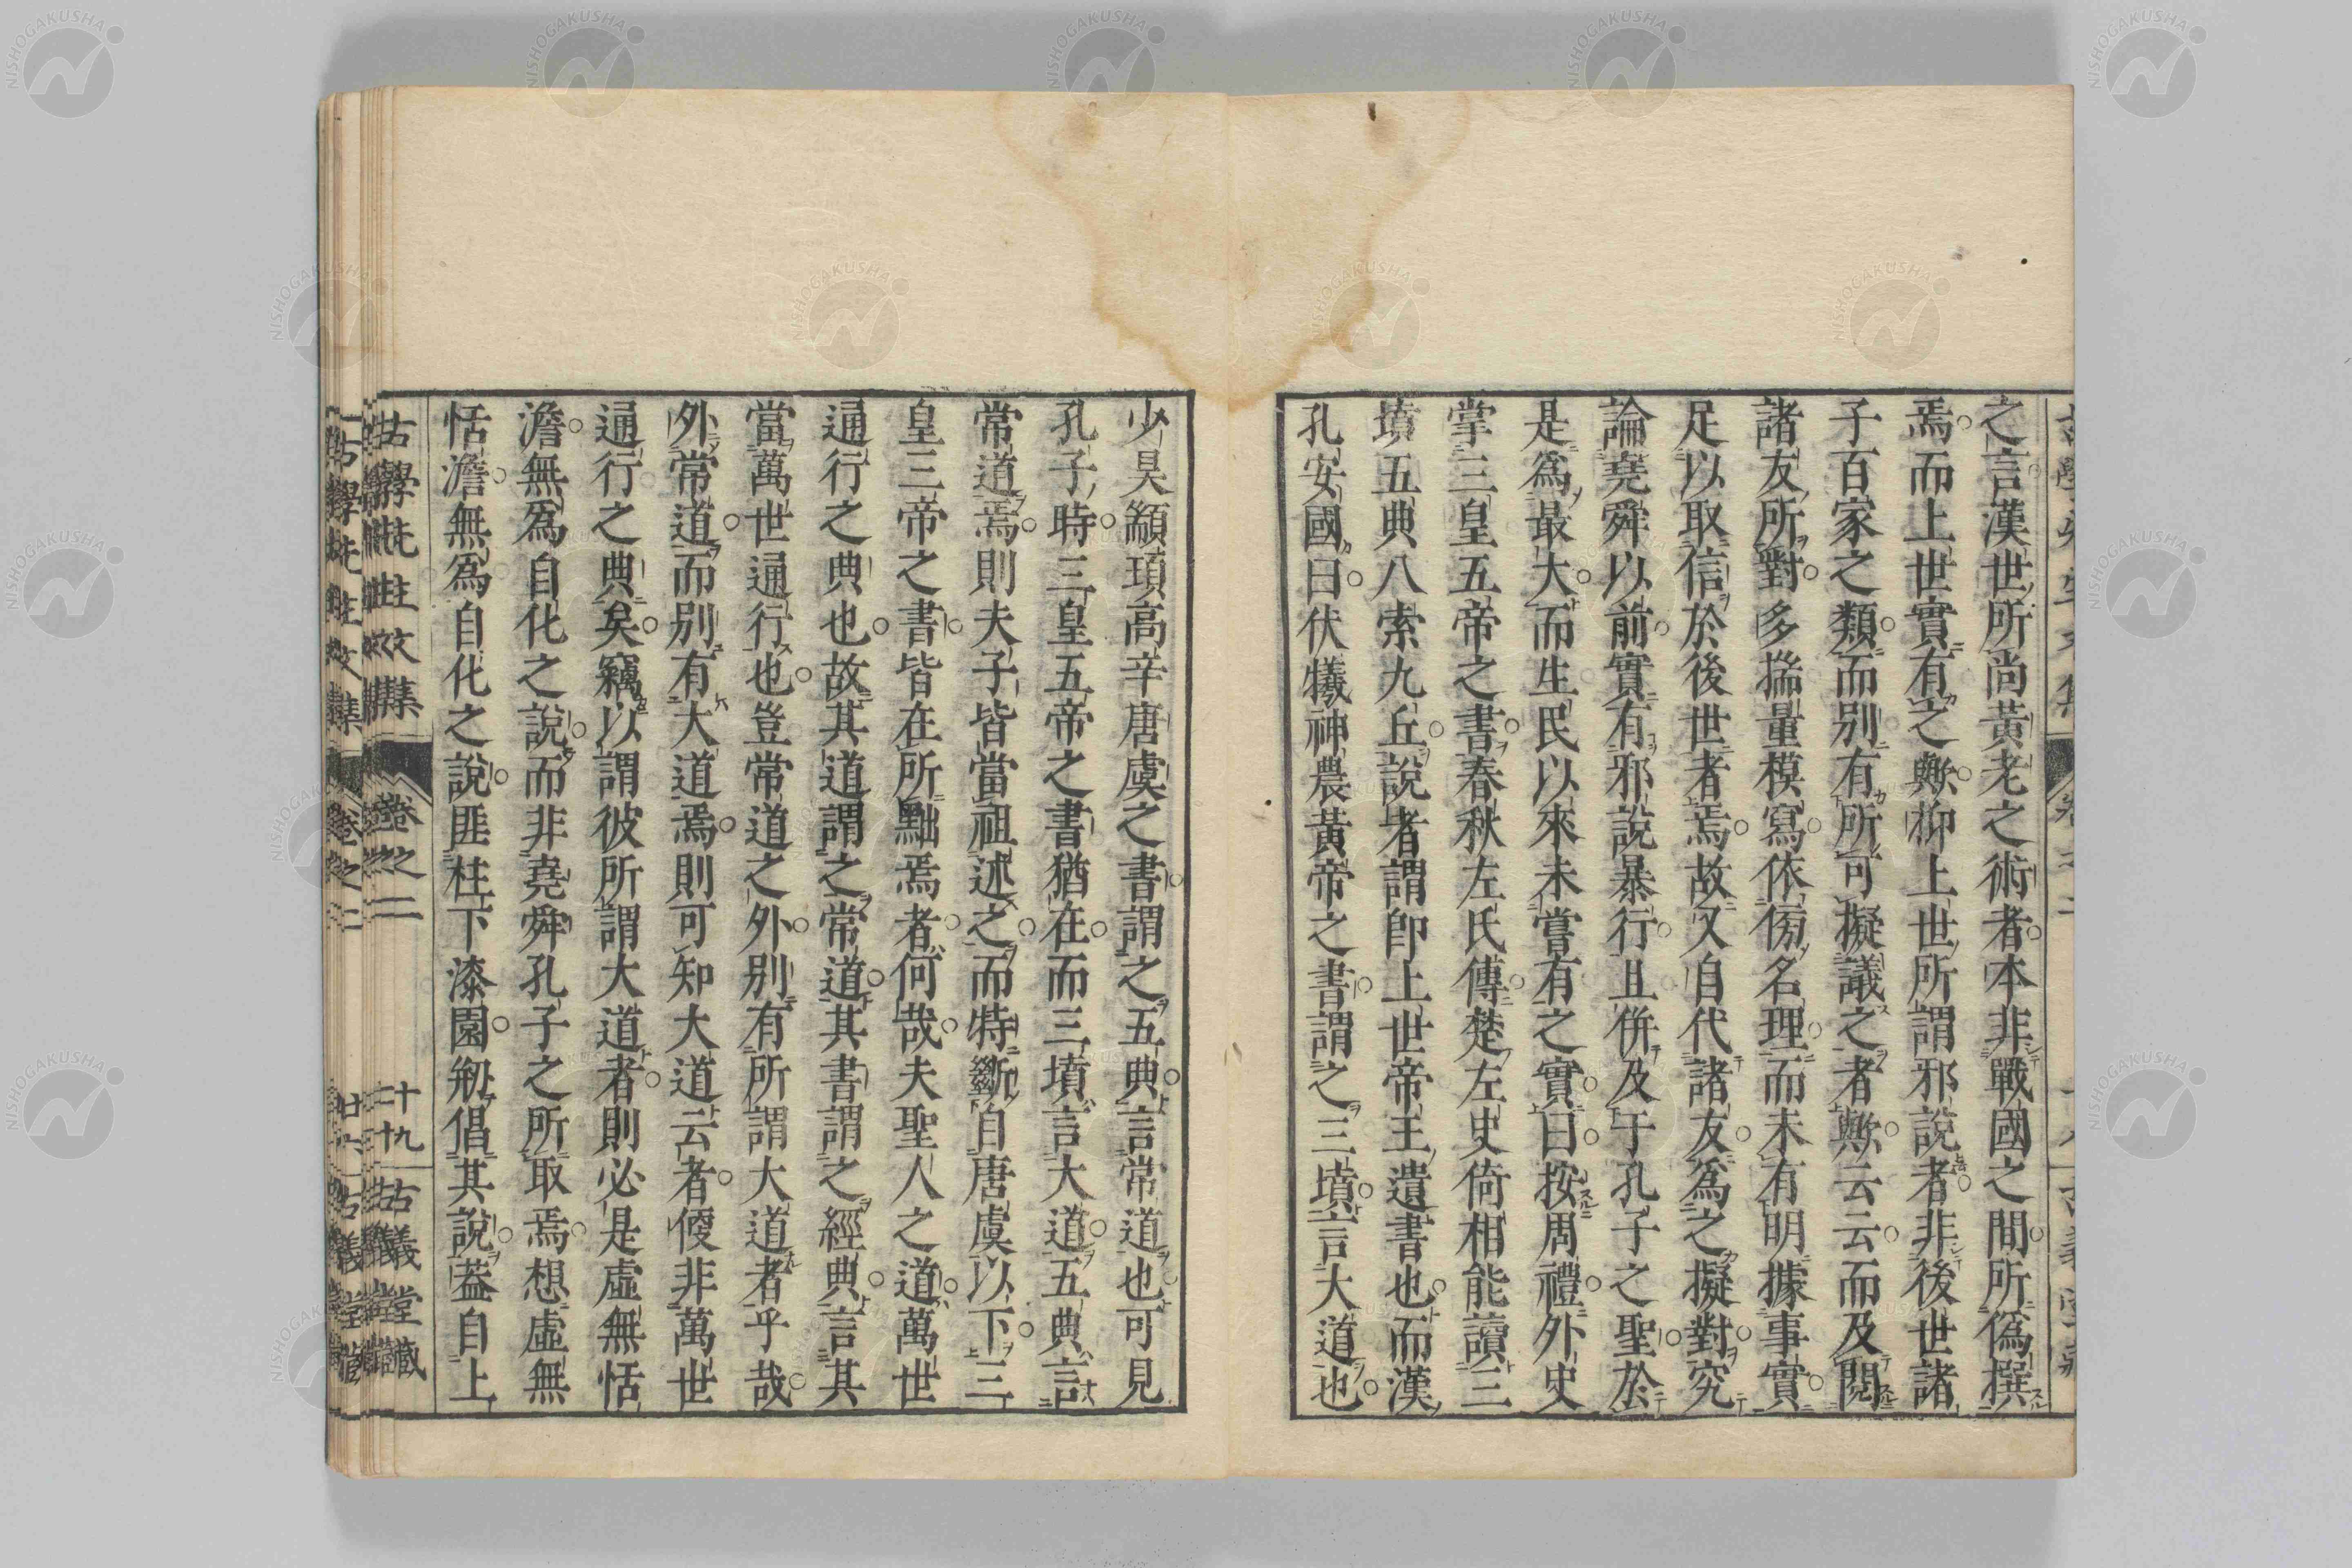 之言漢世所尚黃老之術者本非戰國之間所偽撰
焉而上世實有之歟抑上世所謂邪說者非後世諸
子百家之類而別有所可擬議之者歟云云而及閱
諸友所對多揣量模寫依傍名理而未有明據事實
足以取信於後世者焉故又自代諸友爲之擬對究
論堯舜以前實有邪說暴行且併及于孔子之聖於
是爲最大而生民以來未嘗有之實曰按周禮外史
掌三皇五帝之書春秋左氏傳楚左史倚相能讀三
墳五典八索九丘說者謂卽上世帝王遺書也而漢
孔安國曰伏犧神農黃帝之書謂之三墳言大道也
少昊顓頊高辛唐虞之書謂之五典言常道也可見
孔子時三皇五帝之書猶在而三墳言大道五典言
常道焉則夫子皆當祖述之而特斷自唐虞以下三
皇三帝之書皆在所黜焉者何哉夫聖人之道萬世
通行之典也故其道謂之常道其書謂之經典言其
當萬世通行也豈常道之外別有所謂大道者乎哉
外常道而別有大道焉則可知大道云者便非萬世
通行之典矣竊以謂彼所謂大道者則必是虛無恬
澹無爲自化之說而非堯舜孔子之所取焉想虛無
恬澹無爲自化之說匪柱下漆園剏倡其說蓋自上
古學先生文集 卷之二 十九 古義堂藏